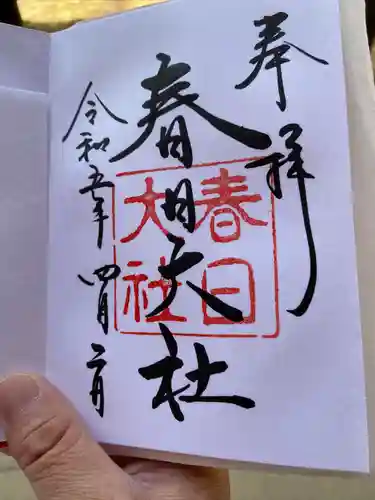 奉拝
春日大社
春日
大社
令和五年四月二日